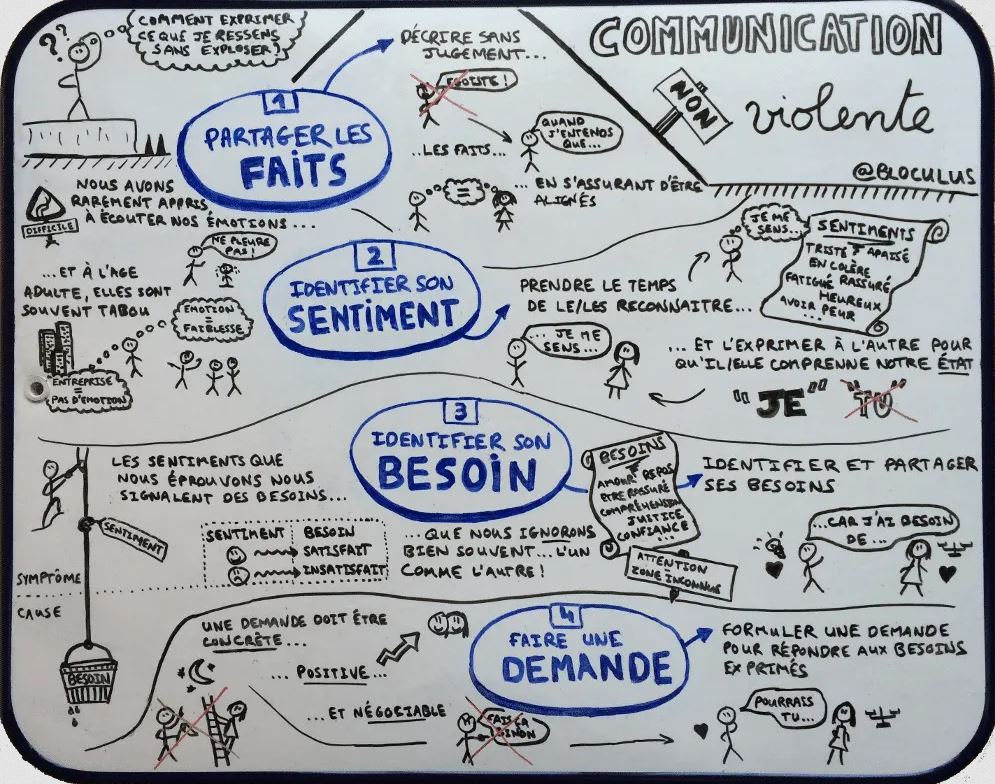 COMMUNICATION
NON
violente
@BLOCULUS
??
COMMENT EXPRIMER
CE QUE JE RESSENS
SANS EXPLOSER?
1
PARTAGER LES
FAITS
DÉCRIRE SANS
JUGEMENT...
EGOÏSTE !
..LES FAITS...
QUAND
J'ENTENDS
QUE...
=
... EN S'ASSURANT D'ÊTRE
ALIGNÉS
DIFFICILE
NOUS AVONS
RAREMENT APPRIS
À ÉCOUTER NOS ÉMOTIONS...
NE PLEURE
PAS !
...ET À L'AGE
ADULTE, ELLES SONT
SOUVENT TABOU
EMOTION
=
FAIBLESSE
ENTREPRISE
=
PAS D'EMOTION
2
IDENTIFIER SON
SENTIMENT
PRENDRE LE TEMPS
DE LE/LES RECONNAITRE...
JE ME
SENS...
SENTIMENTS
TRISTE APAISÉ
EN COLÈRE
FATIGUÉ RASSURÉ
HEUREUX
AVOIR PEUR
...
... JE ME
SENS...
... ET L'EXPRIMER À L'AUTRE POUR
QU'IL/ELLE COMPRENNE NOTRE ÉTAT
"JE" "TU"
3
IDENTIFIER SON
BESOIN
LES SENTIMENTS QUE
NOUS ÉPROUVONS NOUS
SIGNALENT DES BESOINS...
SENTIMENT
SENTIMENT BESOIN
SATISFAIT
INSATISFAIT
...QUE NOUS IGNORONS
BIEN SOUVENT...L'UN
COMME L'AUTRE !
BESOINS
AMOUR REPOS
ETRE RASSURÉ
COMPRÉHENSION
JUSTICE
CONFIANCE
...
ATTENTION
ZONE INCONNUE
IDENTIFIER ET PARTAGER
SES BESOINS
...CAR J'AI BESOIN
DE ...
SYMPTÔME
CAUSE
BESOIN
4
FAIRE UNE
DEMANDE
UNE DEMANDE DOIT ÊTRE
CONCRÈTE...
... POSITIVE...
...ET NÉGOCIABLE
SINON
FORMULER UNE DEMANDE
POUR RÉPONDRE AUX BESOINS
EXPRIMÉS
POURRAIS
TU...